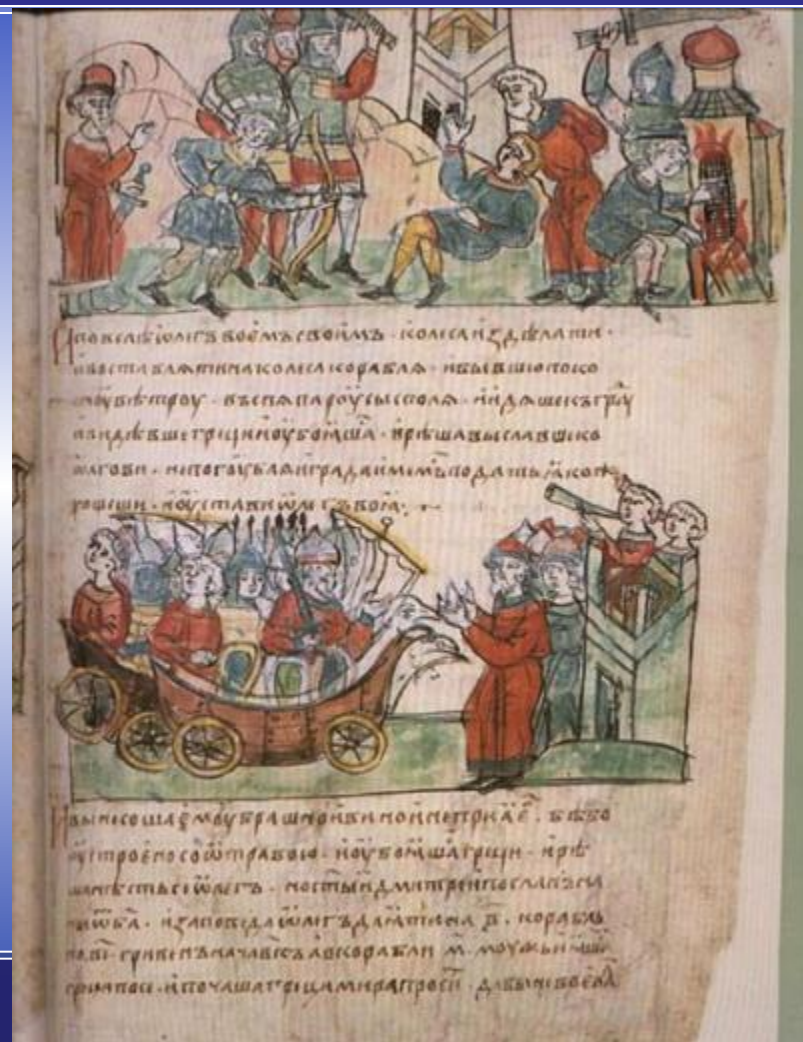 И повелѣ ѡлегъ воемъ своимъ · колеса издѣлати ·
и воставляти на колеса корабля · и бывшю поко
сноу вѣтроу · въспя пароусы с поля · и идяше къ граⷣу
и видѣвше грѣци и оубояшаⷭ · и рѣша выславше ко
ѡлгови · не погоубляи града имемъ подать ꙗко
хощеши · и оустави ѡлегъ воя
И вынесоша емоу брашно и вино и не приꙗ е · бѣ бо
оустроено со ѿтравою · и оубояшаⷭ грѣци · и рѣ
ша нѣсть се ѡлегъ · но ст҃ыи дмитреи посланъ на
ны ѿ б҃а · и заповѣда ѡлегъ дати на в҃ · корабль
по в҃і гривенъ на человекъ а в корабли м҃ · моужь
и почаша грѣци мира просити · дабы не воевал